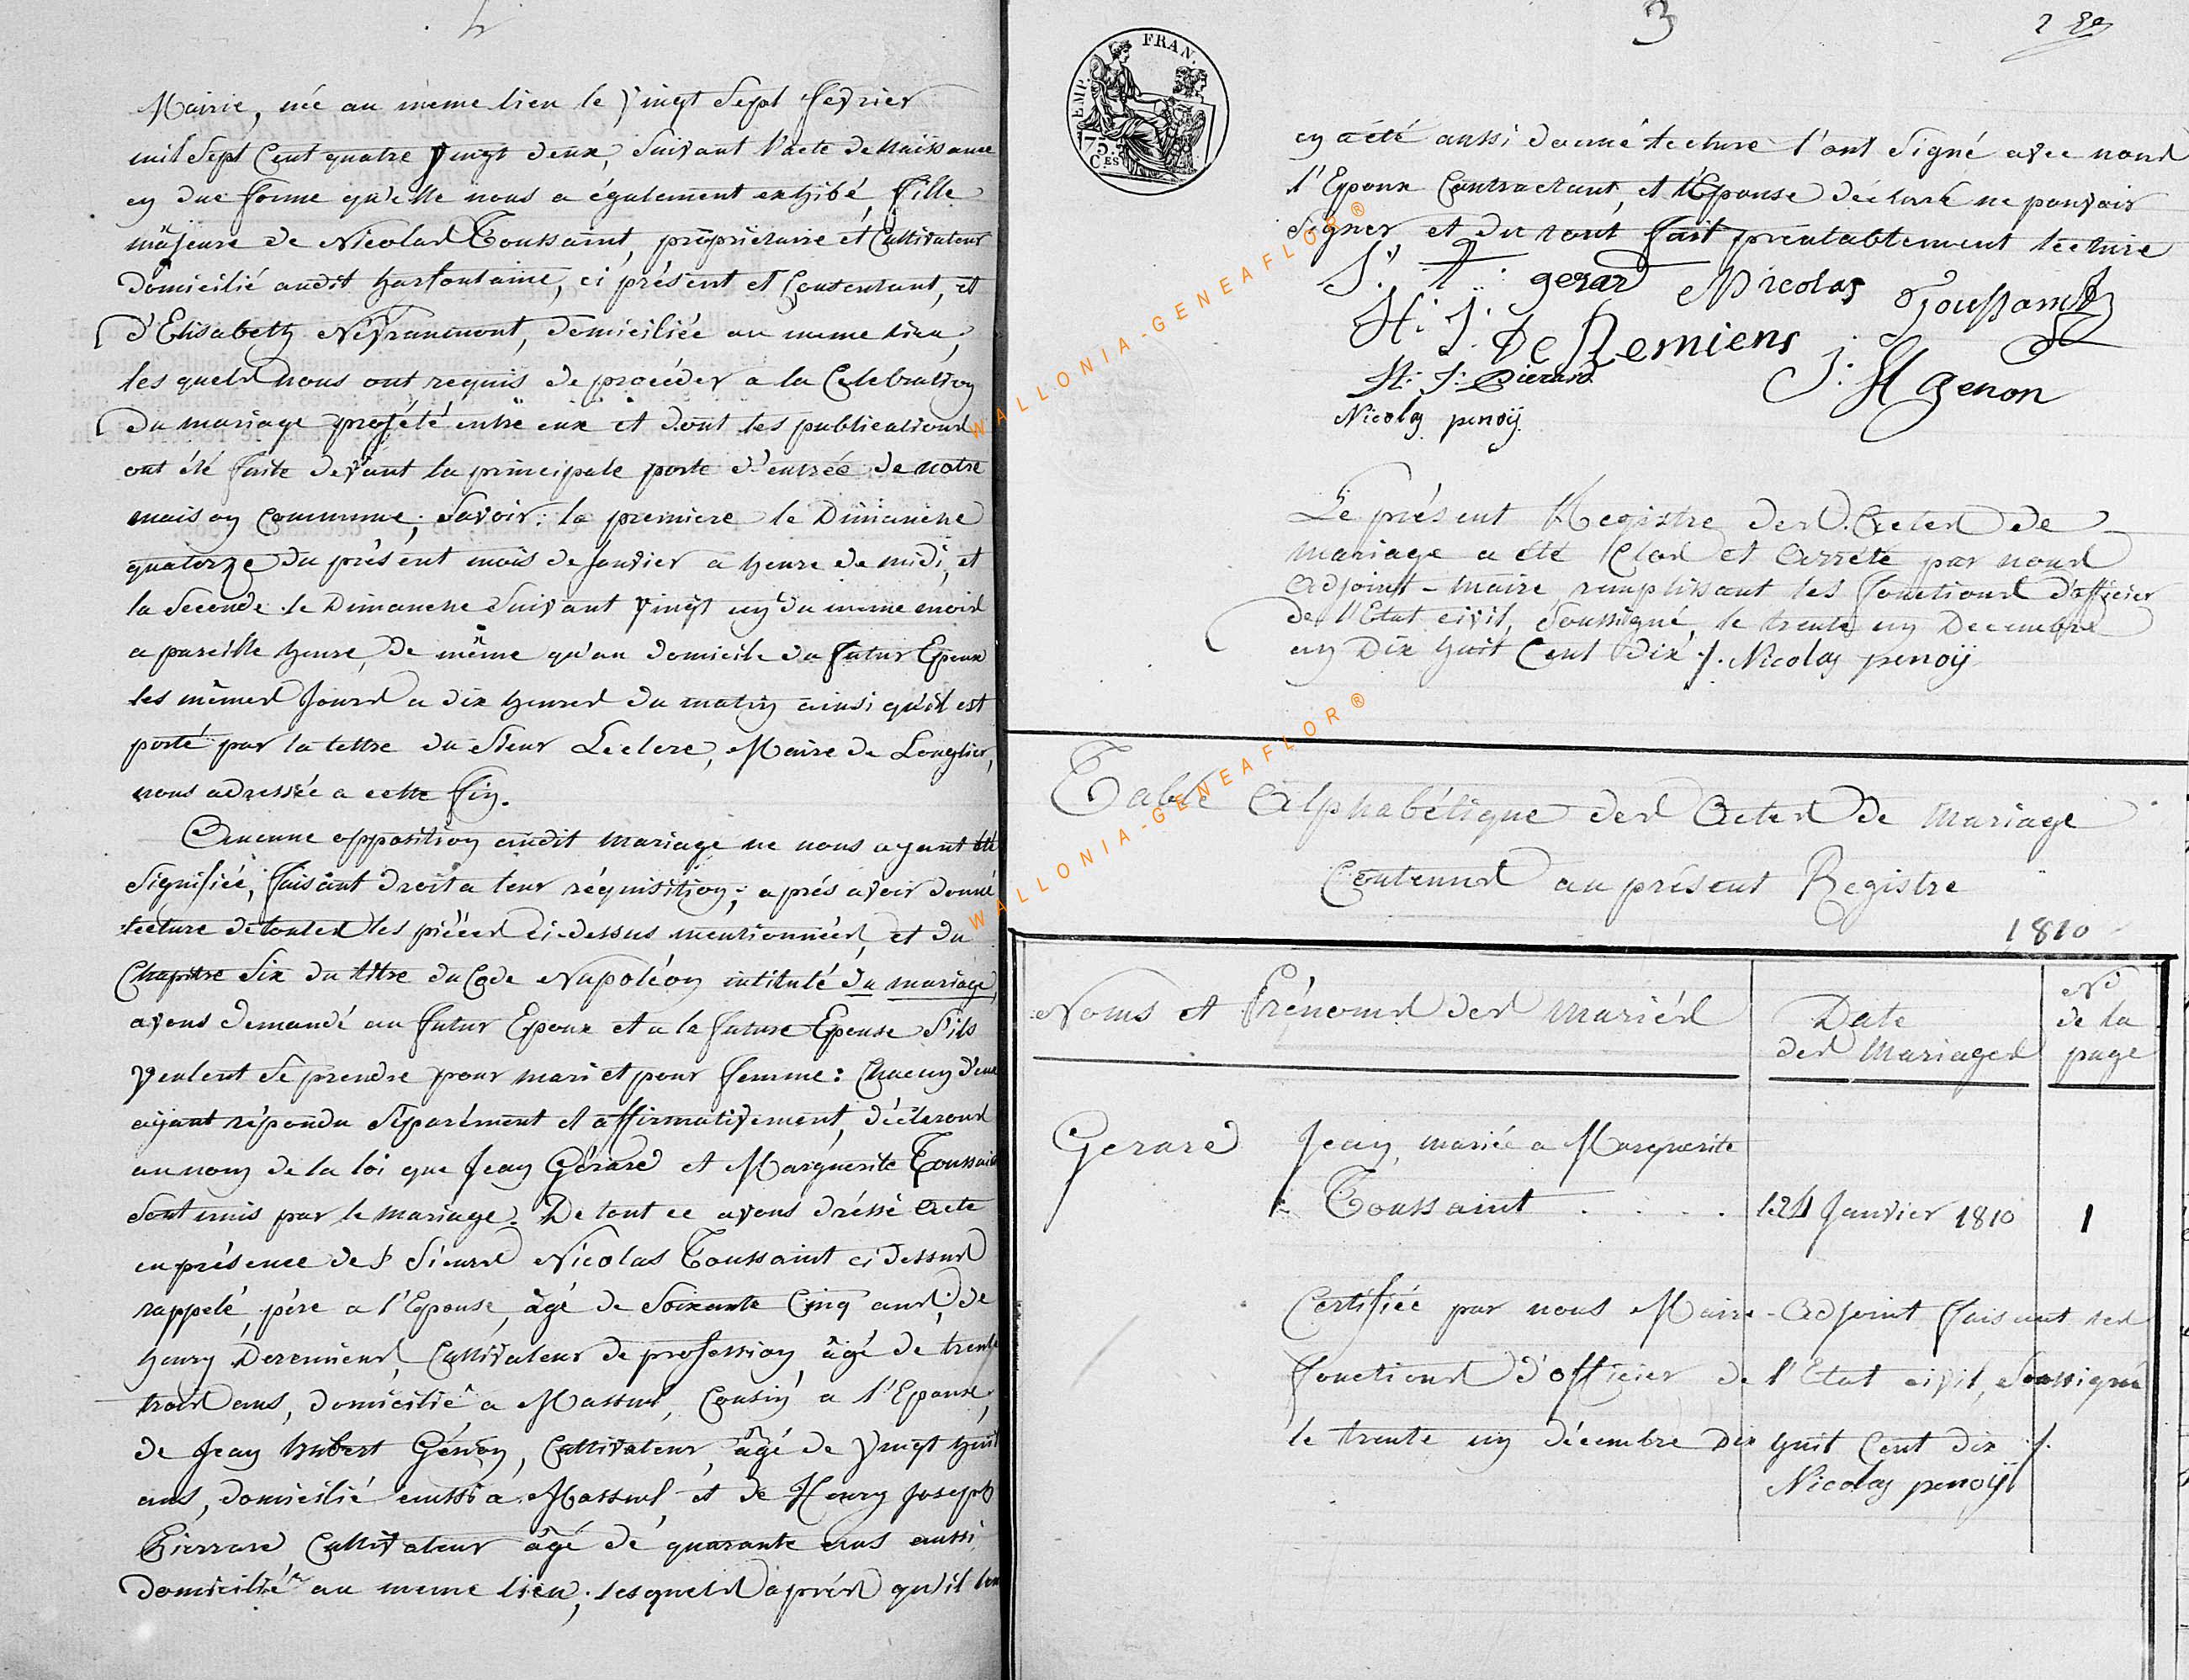 Mairie, née au meme lieu le vingt Sept fevrier
mil Sept Cent quatre vingt deux, Suivant l'acte de naissance
en due forme qu'elle nous a également exhibé, fille
majeure de Nicolas Toussaint, propriétaire et Cultivateur
domicilié audit harfontaine, ci présent et Consentant, et
d'Elisabeth Nevraumont, domiciliée au meme lieu,
les quels nous ont requis de procéder a la Celebration
du mariage projété entre eux et dont les publications
ont été faite devant la principale porte d'entrée de notre
maison Commune; Savoir: la premiere le Dimanche
quatorze du présent mois de Janvier a heure de midi, et
la Seconde le Dimanche Suivant vingt un du meme mois
a pareille heure, de même qu'au domicile du futur Epoux
les mêmes Jours a dix heures du matin ainsi qu'il est
porté par la lettre du Sieur Leclere, Maire de Longlier,
nous adressée a cette fin.
Aucune opposition audit mariage ne nous ayant été
Signifiée, faisant droit a leur réquisition; aprés avoir donné
lecture de toutes les piéces ci-dessus mentionnées, et du
Chapitre Six du titre du Code Napoléon intitulé du mariage,
avons demandé au futur Epoux et a la future Epouse S'ils
veulent Se prendre pour mari et pour femme: Chacun d'eux
ayant répondu Séparément et affirmativement, déclarons
au nom de la loi que Jean Gérard et Marguerite Toussaint
Sont unis par le mariage. De tout ce avons dréssé Acte
en présence des Sieurs Nicolas Toussaint ci dessus
rappelé, pére a l'Epouse, âgé de Soixante Cinq ans, de
henry Deremiens, Cultivateur de profession, âgé de trente
trois ans, domicilié a Massul, Cousin a l'Epouse,
de Jean hubert Génon, Cultivateur, âgé de vingt huit
ans, domicilié aussi a Massul, et de Henry Joseph
Pierrard Cultivateur âgé de quarante ans aussi
domicilié au meme lieu; lesquels aprés qu'il leur
3
en a été aussi donné lecture l'ont Signé avec nous
l'Epoux Contractant, et l'Epouse déclaré ne pouvoir
Signer et du tout fait préalablement lecture
gerard Nicolas Toussaint
H: J: De Remiens
H: J: Pierard J: H genon
Nicolas penoÿ
Le présent Registre des Actes de
mariage a été Clos et Arrété par nous
Adjoint-maire remplissant les fonctions d'officier
de l'Etat civil, Soussigné, le trente un Decembre
an Dix huit Cent dix ./. Nicolas penoÿ
Table Alphabétique des Actes de Mariage
Contenus au présent Registre
1810
Noms et Prénoms des Mariés
Date
des Mariages
No
de la
page
Gerard Jean, mariée a Marguerite
Toussaint . . . . le 24 Janvier 1810 1
Certifiée par nous Maire-Adjoint faisant les
fonctions d'officier de l'Etat civil, Soussigné
le trente un décembre Dix huit Cent dix ./.
Nicolas penoÿ
TEMP. FRAN.
75
CES
WALLONIA-GENEAFLOR®
WALLONIA-GENEAFLOR®